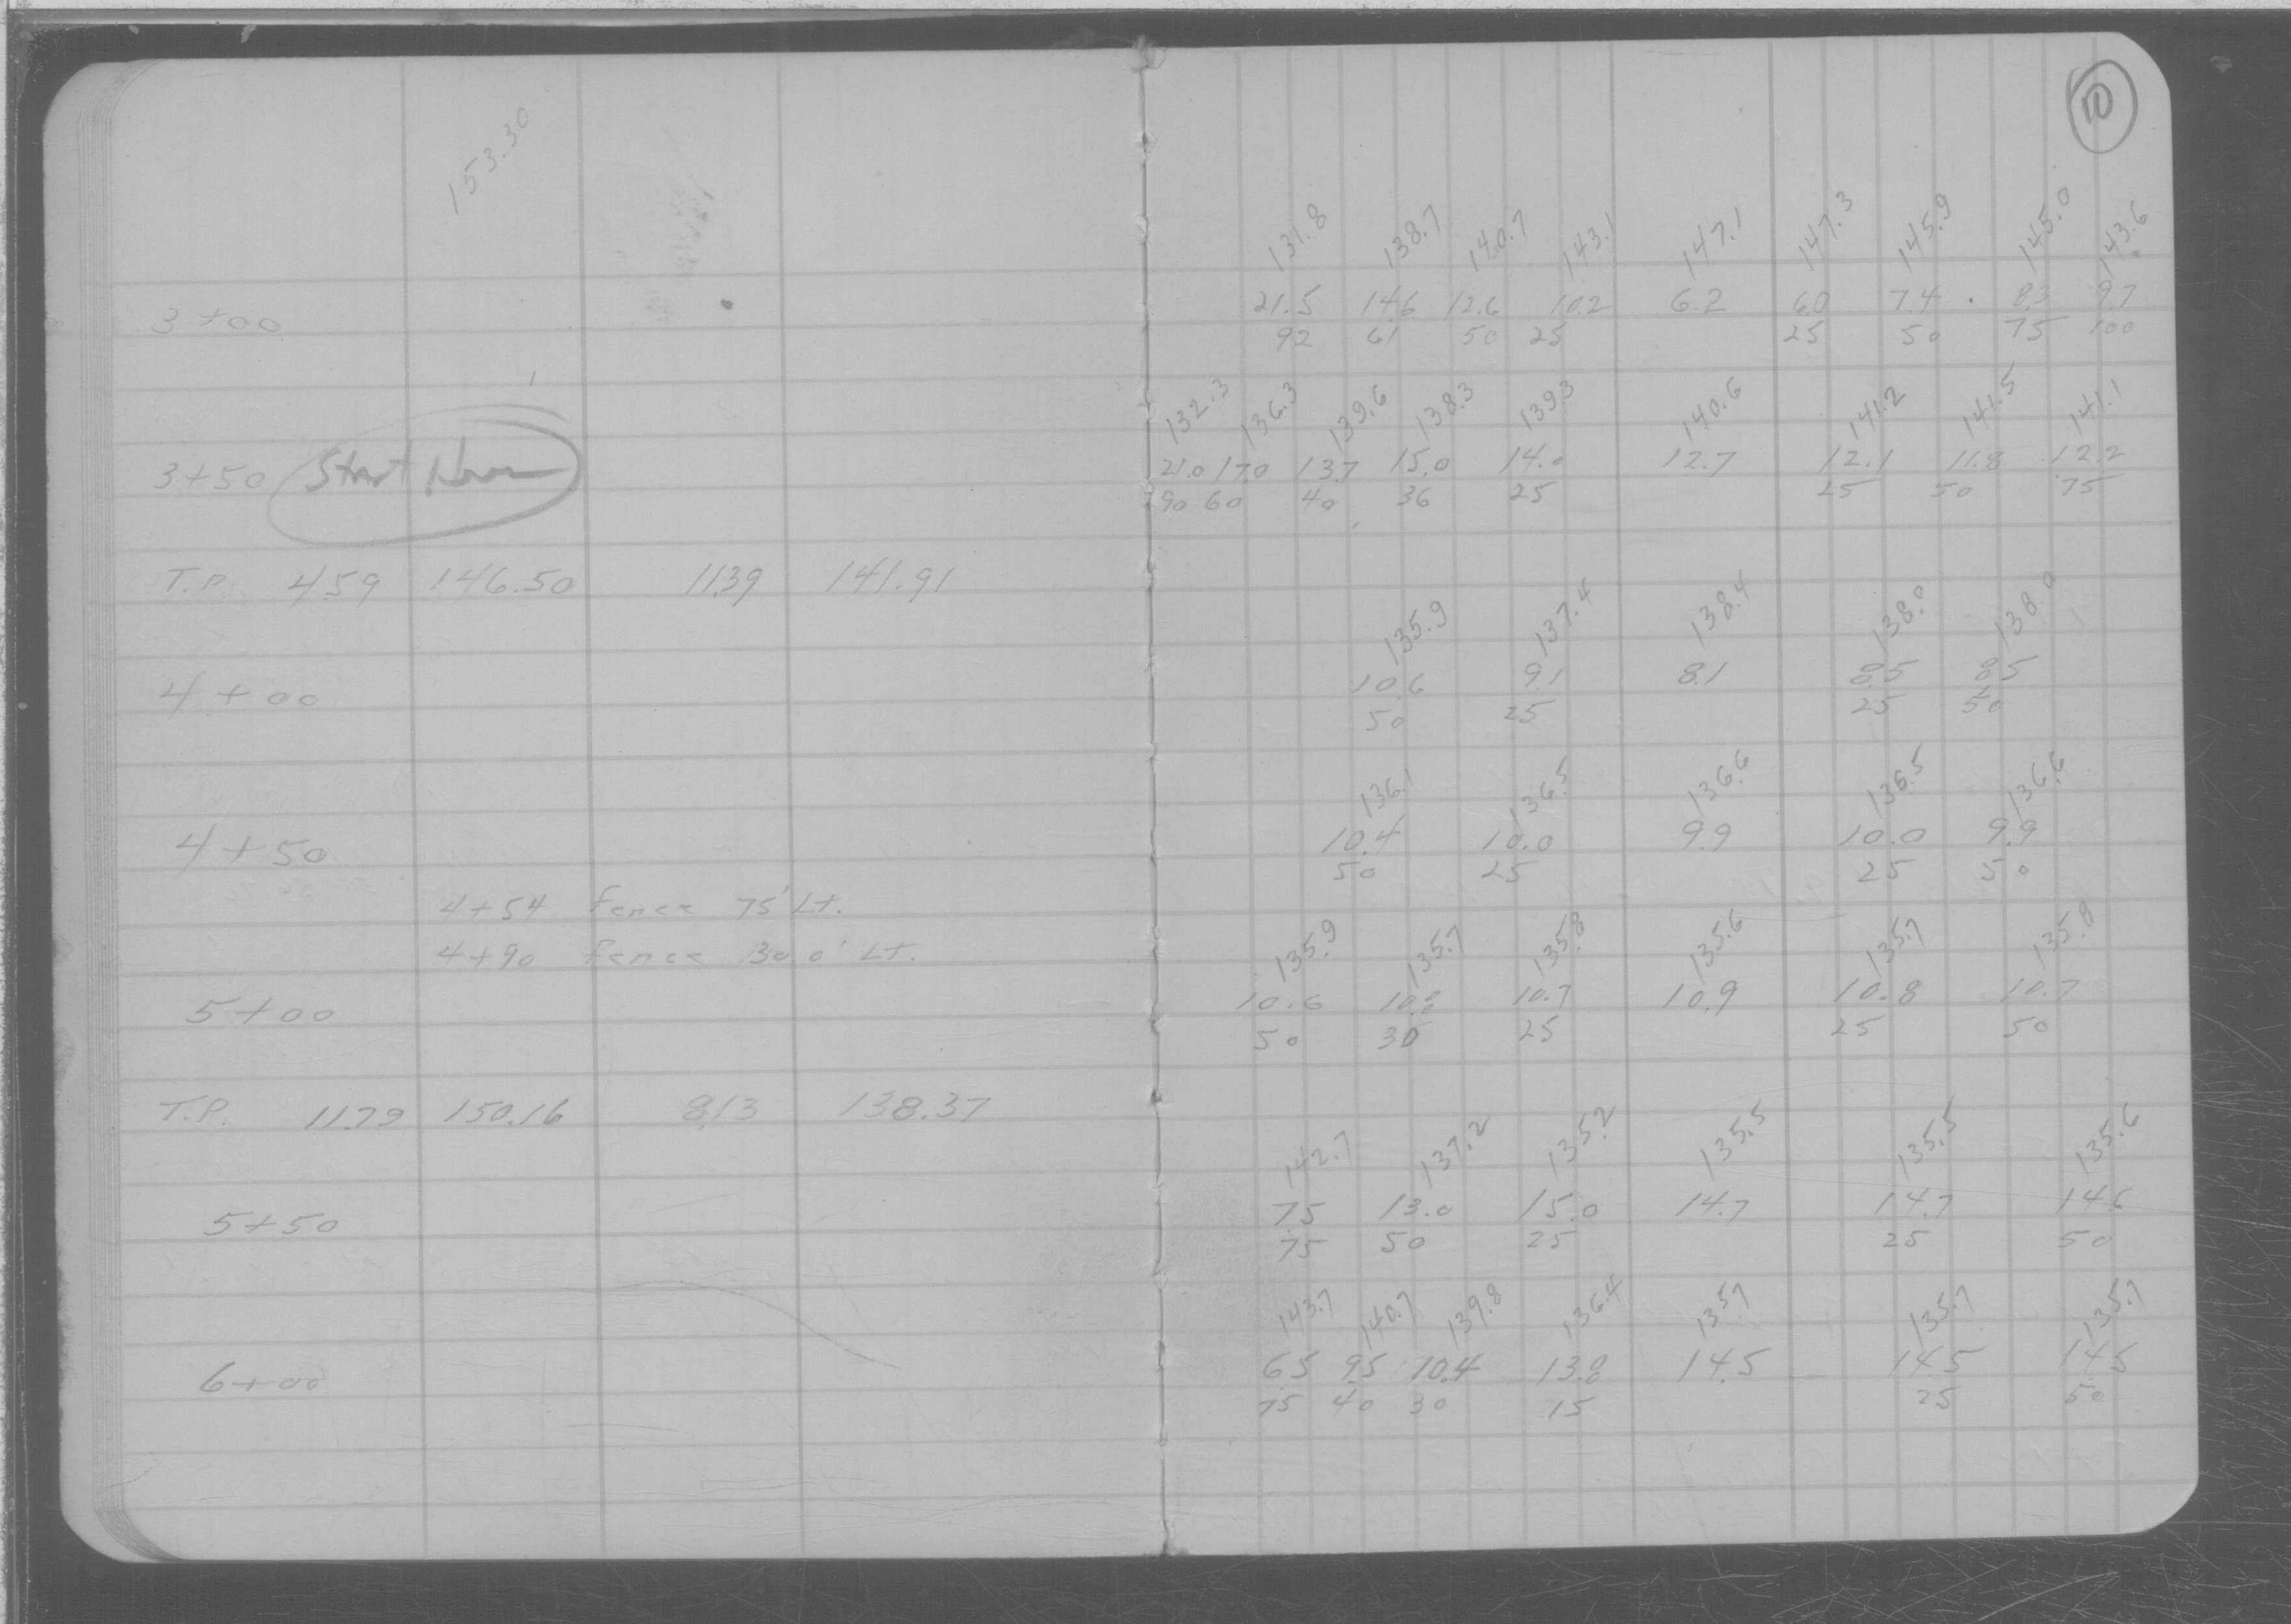 10
153.30
131.8 138.7 140.7 143.1 147.1 147.3 145.9 145.0 143.6
3+00 21.5 14.6 12.6 10.2 6.2 6.0 7.4 8.3 9.7
92 61 50 25 25 50 75 100
132.3 136.3 139.6 138.3 139.3 140.6 141.2 141.5 141.1
3+50 Start 21.0 17.0 13.7 15.0 14.0 12.7 12.1 11.8 12.2
90 60 40 36 25 25 50 75
T.P. 4.59 146.50 11.39 141.91
135.9 137.4 138.4 138.0 138.0
4+00 10.6 9.1 8.1 8.5 8.5
50 25 25 50
136.1 136.5 136.6 136.5 136.6
4+50 10.4 10.0 9.9 10.0 9.9
50 25 25 50
4+54 fence 75' Lt.
4+90 fence 300' Lt.
135.9 135.7 135.8 135.6 135.7 135.8
5+00 10.6 10.8 10.7 10.9 10.8 10.7
50 30 25 25 50
T.P. 11.79 150.16 8.13 138.37
142.7 137.2 135.2 135.5 135.5 135.6
5+50 7.5 13.0 15.0 14.7 14.7 14.6
75 50 25 25 50
143.7 140.7 139.8 136.4 135.7 135.7 135.7
6+00 6.5 9.5 10.4 13.8 14.5 14.5 14.5
75 40 30 15 25 50